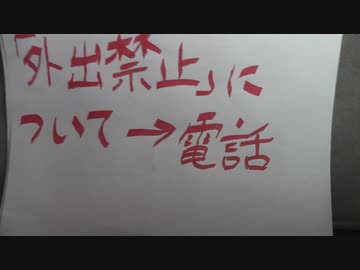 「外出禁止」に
ついて→電話